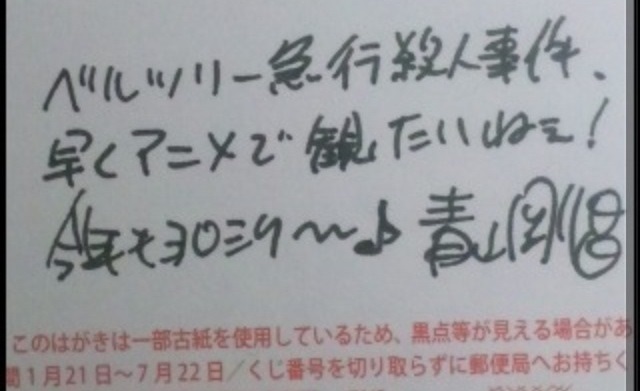 ベルツリー急行殺人事件、
早くアニメで観たいねェ!
今年もヨロミク〜♪ 青山剛昌
このはがきは一部古紙を使用しているため、黒点等が見える場合があ
間1月21日〜7月22日/くじ番号を切り取らずに郵便局へお持ちく